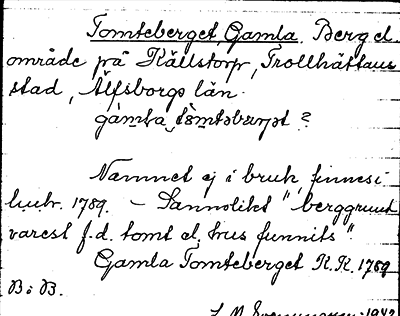 Tomteberget, Gamla. Berg el.
område på Källstorp, Trollhättans
stad, Älfsborgs län.
gamla tomtəbærjət ?
Namnet ej i bruk, finnes i
lantr. 1789. – Sannolikt "berggrund
varest f.d. tomt el. hus funnits".
Gamla Tomteberget R.R. 1789
B i B.
1942